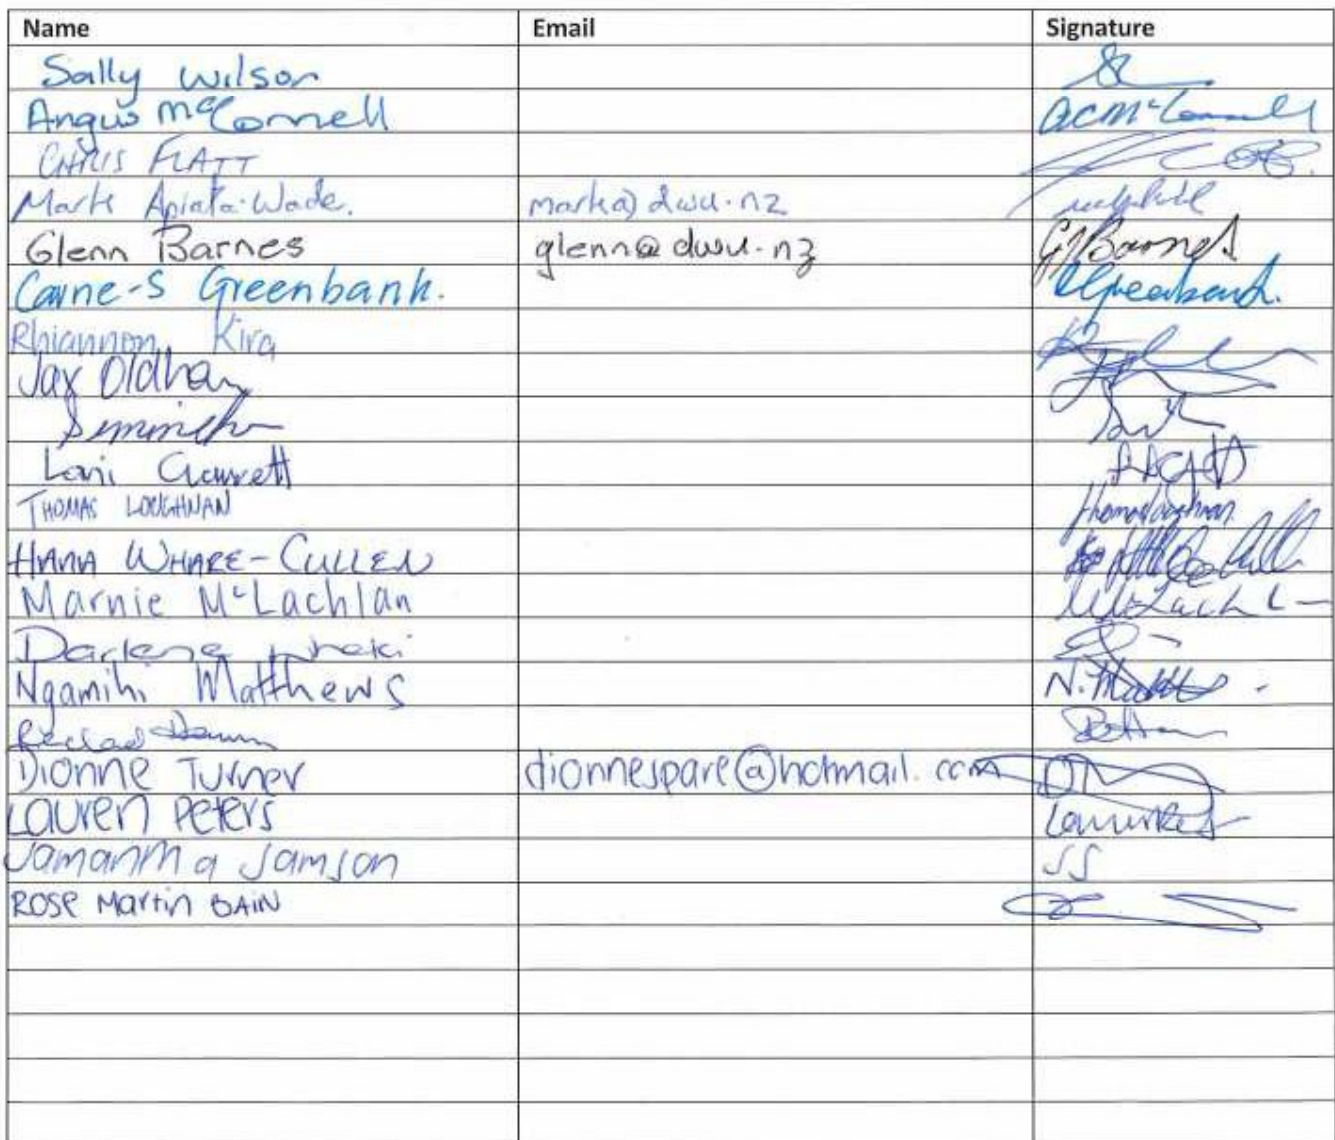 Name Email Signature
Sally Wilson
Angus McConnell ACMcConnell
CHRIS FLATT
Mark Apiata-Wade. mark@dwu.nz
Glenn Barnes glenn@dwu.nz GJBarnes
Carne-S Greenbank. CGreenbank.
Rhiannon Kira
Jax Oldham
Lani Garrett
THOMAS LOUGHNAN thomasloughnan
HANA WHARE-CULLEN
Marnie McLachlan McLachl
Darlene
Ngamihi Matthews N.
Dionne Turner dionnespare@hotmail.com
Lauren Peters
Samson SS
ROSE Martin BAIN